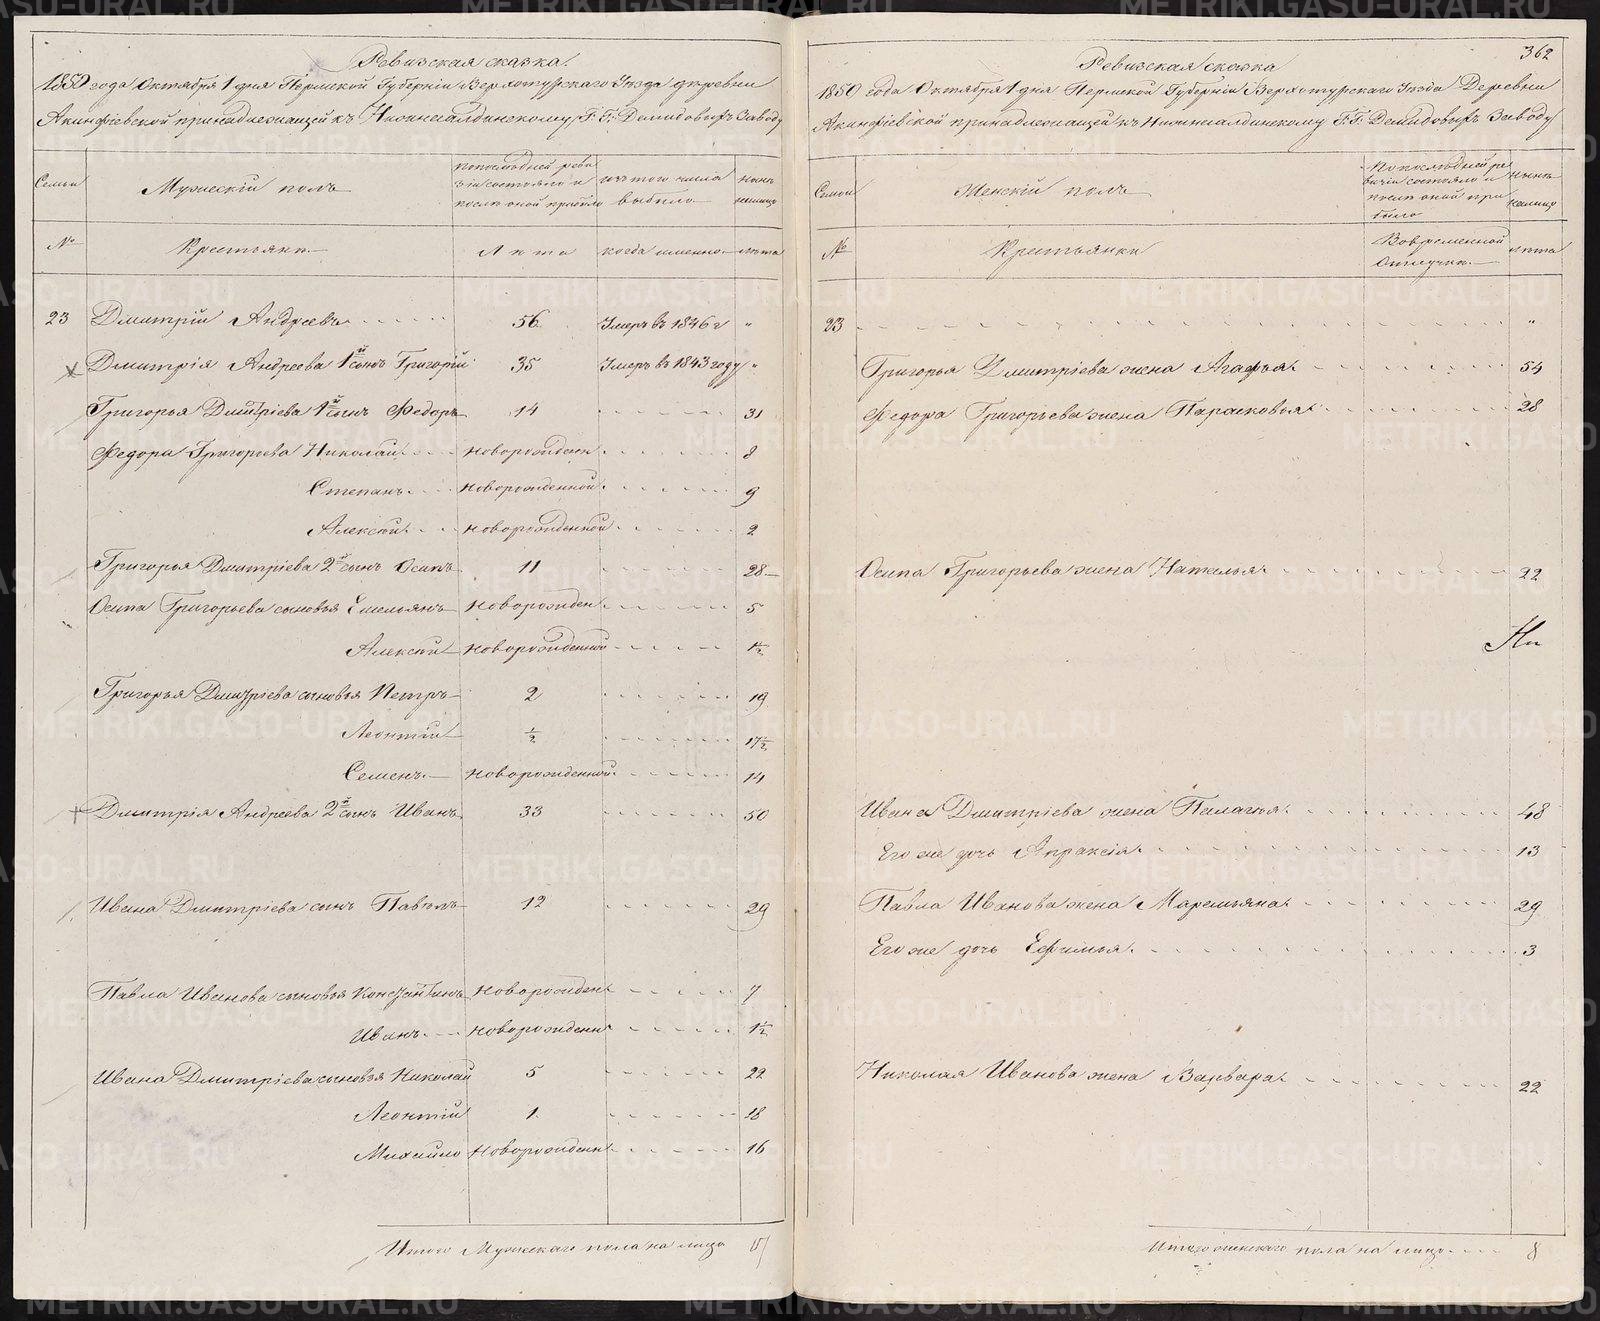 Ревизская сказка.
1850 года Октября 1 дня Пермской Губерніи Верхотурскаго Уезда деревни
Акинфіевской принадлежащей къ Нижнесалдинскому Г.Г. Демидовыхъ Заводу
Семьи
Мужескій полъ
По последней реви
зіи состояло и
после оной прибыло
изъ того числа
выбыло
ныне
на лицо
№
Крестьяне
Лета
когда именно
лета
23 Дмитрій Андреевъ 56 Умеръ въ 1846 г "
Дмитрія Андреева 1й сынъ Григорій 35 Умеръ въ 1843 году "
Григорья Дмитріева 1й сынъ Федоръ 14 31
Федора Григорьева Николай новорожден 8
Степанъ новорожденной 9
Алексей новорожденной 2
Григорья Дмитріева 2й сынъ Осипъ 11 28
Осипа Григорьева сыновья Емельянъ новорожден 5
Алексей новорожденной 1½
Григорья Дмитріева сыновья Петръ 2 19
Леонтій ½ 17½
Семенъ новорожденной 14
Дмитрія Андреева 2й сынъ Иванъ 33 50
Ивана Дмитріева сынъ Павелъ 12 29
Павла Иванова сыновья Константинъ Новорожден 7
Иванъ новорожден 1½
Ивана Дмитріева сыновья Николай 5 22
Леонтій 1 18
Михайло Новорожден 16
Итого Мужескаго пола на лицо 15
362
Ревизская сказка
1850 года Октября 1 дня Пермской Губерніи Верхотурскаго Уезда Деревни
Акинфіевской принадлежащей къ Нижнесалдинскому Г.Г. Демидовыхъ Заводу
Семьи
Женскій полъ
По последней ре
визіи состояло и
после оной при
было
ныне
на лицо
№
Крестьянки
Во временной
отлучке
лета
23 "
Григорья Дмитріева жена Агафья 54
Федора Григорьева жена Парасковья 28
Осипа Григорьева жена Наталья 22
Ивана Дмитріева жена Палагья 48
Его же дочь Апраксія 13
Павла Иванова жена Маремьяна 29
Его же дочь Ефимья 3
Николая Иванова жена Варвара 22
Итого женскаго пола на лицо 8
METRIKI.GASO-URAL.RU